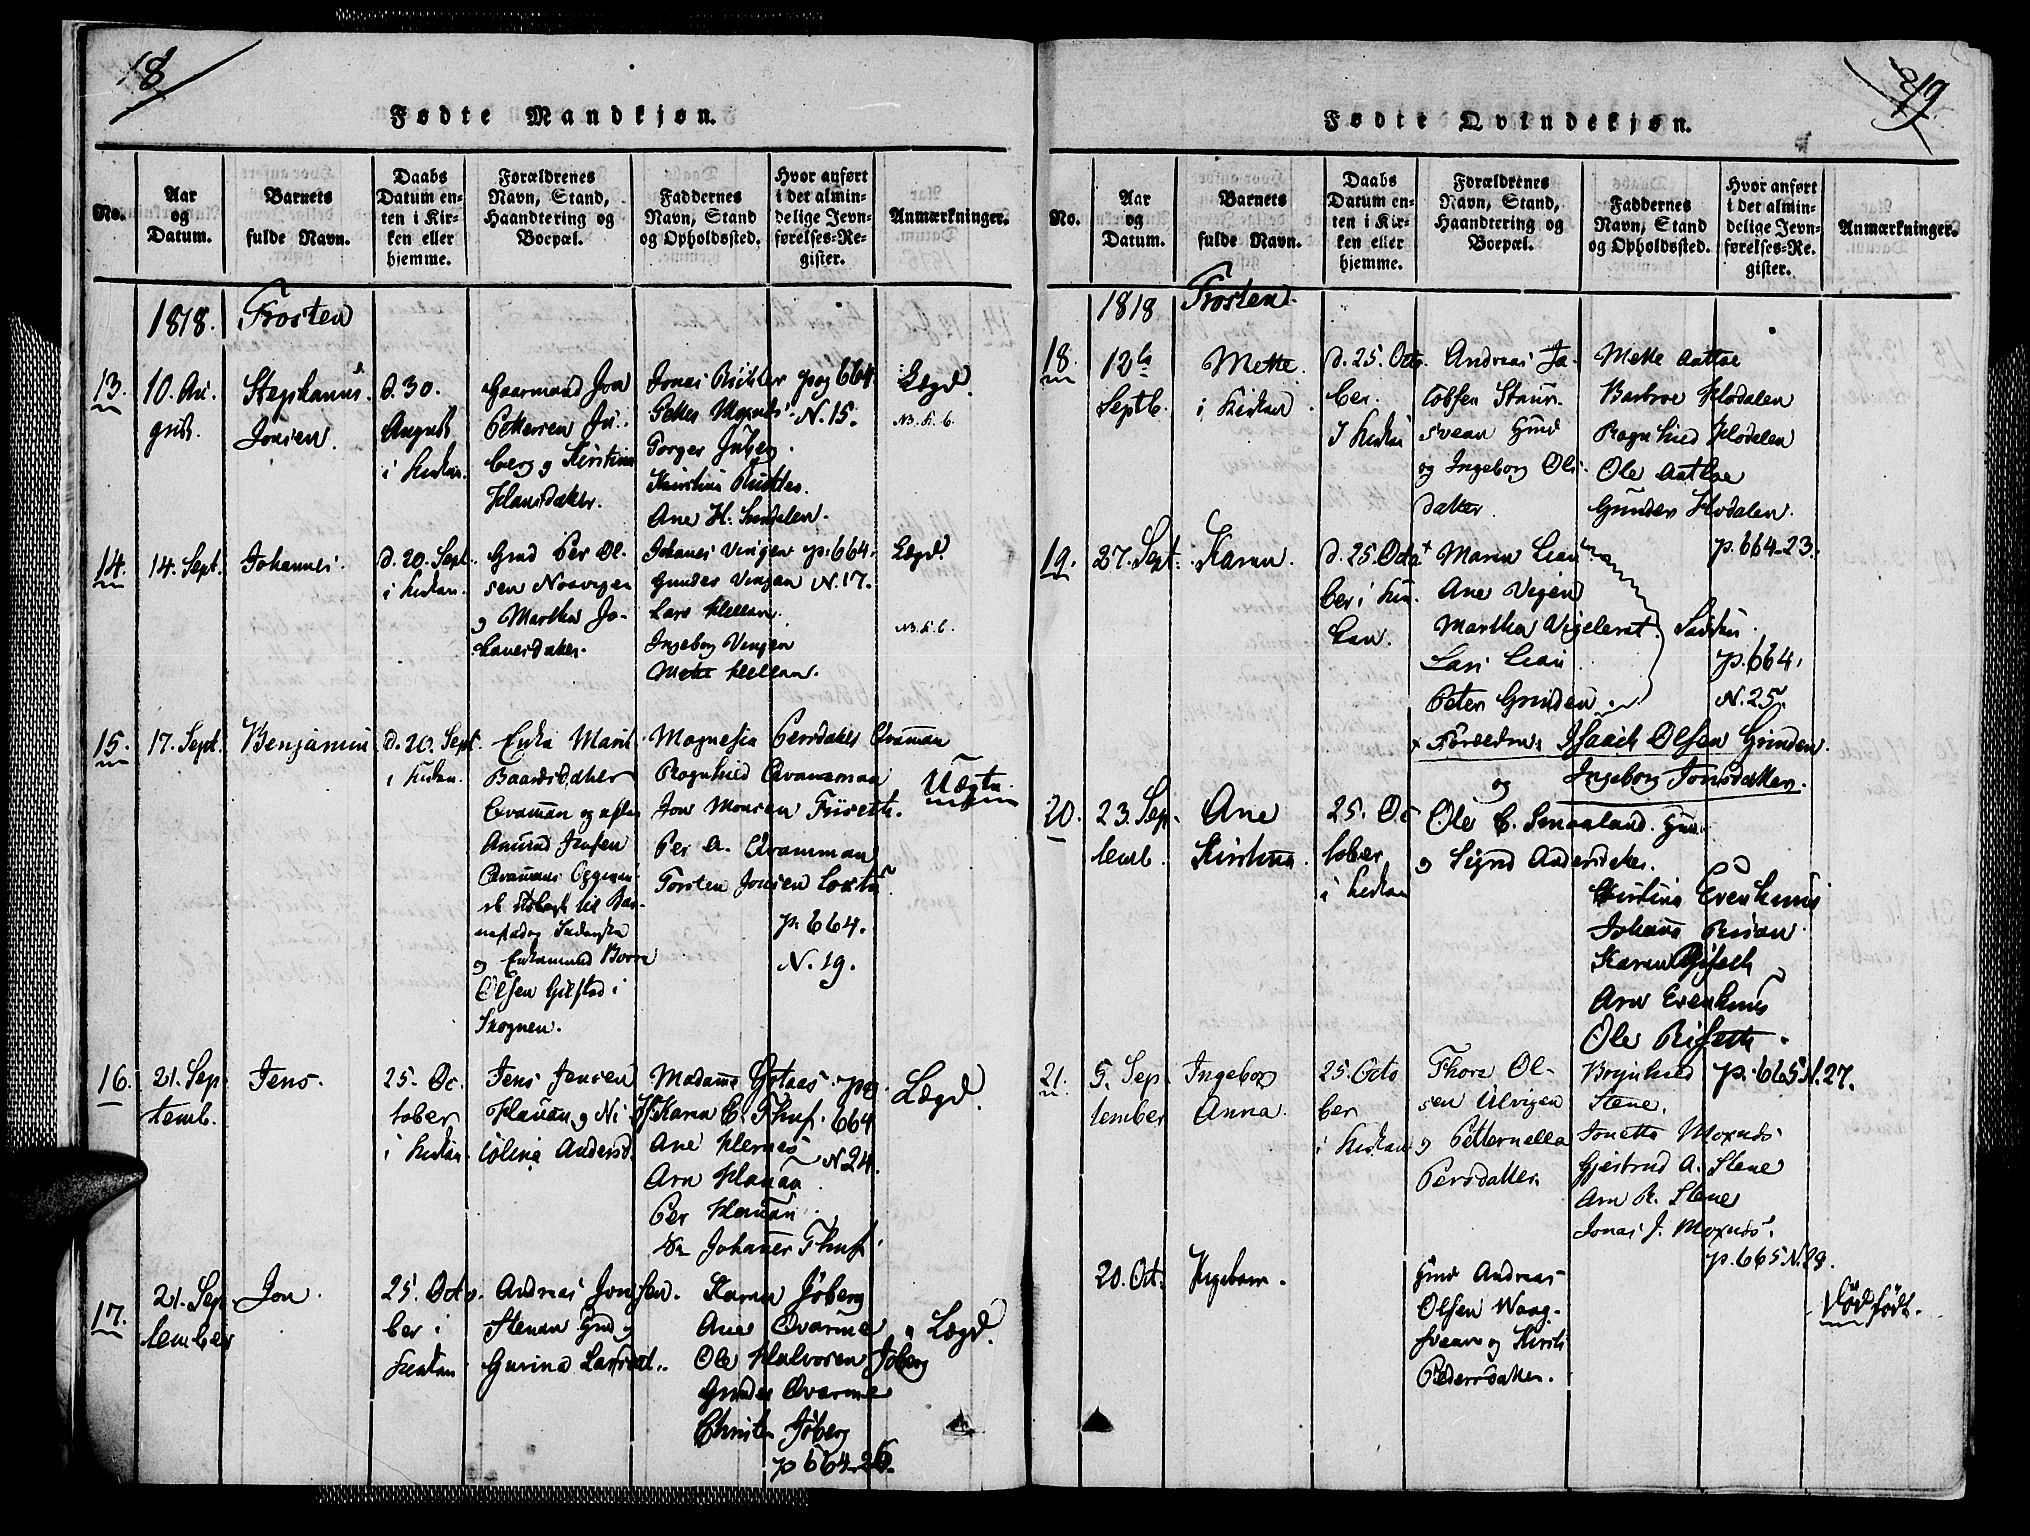 18
Fødte Mandkjøn.
No.
Aar
og
Datum.
Barnets
fulde Navn.
Daabs
Datum en-
ten i Kir-
ken eller
hjemme.
Forældrenes
Navn, Stand,
Haandtering og
Boepæl.
Faddernes
Navn, Stand
og Opholdssted.
Hvor anført
i det almin-
delige Jevn-
førelses-Re-
gister.
Anmærkninger.
1818.
Frosten
13.
10. Au-
gust.
Stephanus
Jonsen.
d. 30.
August
i Kirken.
Gaarmand Jon
Pettersen Ju-
berg og Kirstina
Hansdatter.
Jonas Richter
Petter Moxnæs
Torger Juberg
Kirstina Richter
Ane H.
pag 664.
N. 15.
Lægd.
NB. K. 6.
14.
14. Sept.
Johannes.
d. 20. Sept.
i Kirken.
Gmd Per Ol-
sen Nosvigen
og Martha Jo-
hanesdatter.
Johanes Vingen
Gunder Vingen
Lars Hellan
Ingeborg Vingen
Mette Hellan.
p. 664.
N. 17.
Lægd.
NB. K. 6.
15.
17. Sept.
Benjamin
d. 20. Sept.
i Kirken.
Enke Marit
Baardsdatter
Qvamman og
Amund Jensen
til Bar-
og Enkemand Borre
Olsen Gilstad i
Skognen.
Magnesia Persdatter Qvamman
Ragnhild Qvamman
Jon Monsen
Per A. Qvamman
Torsten Jonsen
p. 664.
N. 19.
Uægte
16.
21. Sep-
temb.
Jens.
25. Oc-
tober
i Kirken
Jens Jensen
Hauan og Ni-
colina Andersd.
Madame
Karen E.
Ane Hernæs
Arn Hauan
Per Hauan
Johanes
pag.
664
N. 24.
Lægd.
17.
21. Sep-
tember
Jon.
25. Octo-
ber i
Kirken
Andreas Jonsen
Stenan Gmd og
Gurina Larsdat.
Karen Jøberg
Ane Qvarme
Ole Halvorsen Jøberg
Gunder Qvarme
Christen Jøberg
p 664. 26.
Lægd.
19.
Fødte Qvindekjøn.
No.
Aar
og
Datum.
Barnets
fulde Navn.
Daabs
Datum en-
ten i Kir-
ken eller
hjemme.
Forældrenes
Navn, Stand,
Haandtering og
Boepæl.
Faddernes
Navn, Stand
og Opholdssted.
Hvor anført
i det almin-
delige Jevn-
førelses-Re-
gister.
Anmærkninger.
1818
Frosten.
18.
12te
Septb.
Mette.
i Kirken.
d. 25. Octo-
ber.
I Kirken
Andreas Ja-
cobsen Staur-
svean Gmd
og Ingeborg Ols-
datter.
Mette Aattoe
Barbroe Flodalen
Ragnhild Flodalen
Ole Aattoe
Gunder Flodalen.
p. 664. 23.
19.
27. Sept.
Karen.
d. 25. Octo-
ber i Kir-
ken.
Maren Lian
Ane Vigen
Martha Vigeleret
Lars Lian
Peter Grinden
p. 664.
N. 25.
Forældre: Isaach Olsen Grinden.
og Ingeborg Jonsdatter.
20.
23. Sep-
temb.
Ane
Kirstina.
25. Oc-
tober
i Kirken
Ole E. Smaaland Gmd.
og Signd Andersdatter.
Kirstina Evenhuus
Johana
Karen Risseth
Arn Evenhuus
Ole Risseth.
21.
5. Sep-
tember
Ingeborg
Anna.
25. Octo-
ber
i Kirken
Thore Ol-
sen Ulvigen
og Petternella
Persdatter.
Stene.
Jonetta Moxnæs
Gjertrud A. Stene
Arn R. Stene
Jonas J. Moxnæs.
p. 665 N. 27.
20. Oct.
Gmd Andreas
Olsen Waag-
svean og Kirsti
Pedersdatter.
p. 665 N. 29.
Død født.